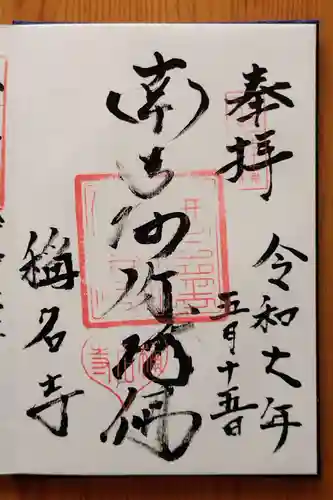 奉拝
令和六年
五月十五日
南無阿弥陀佛
稱名寺